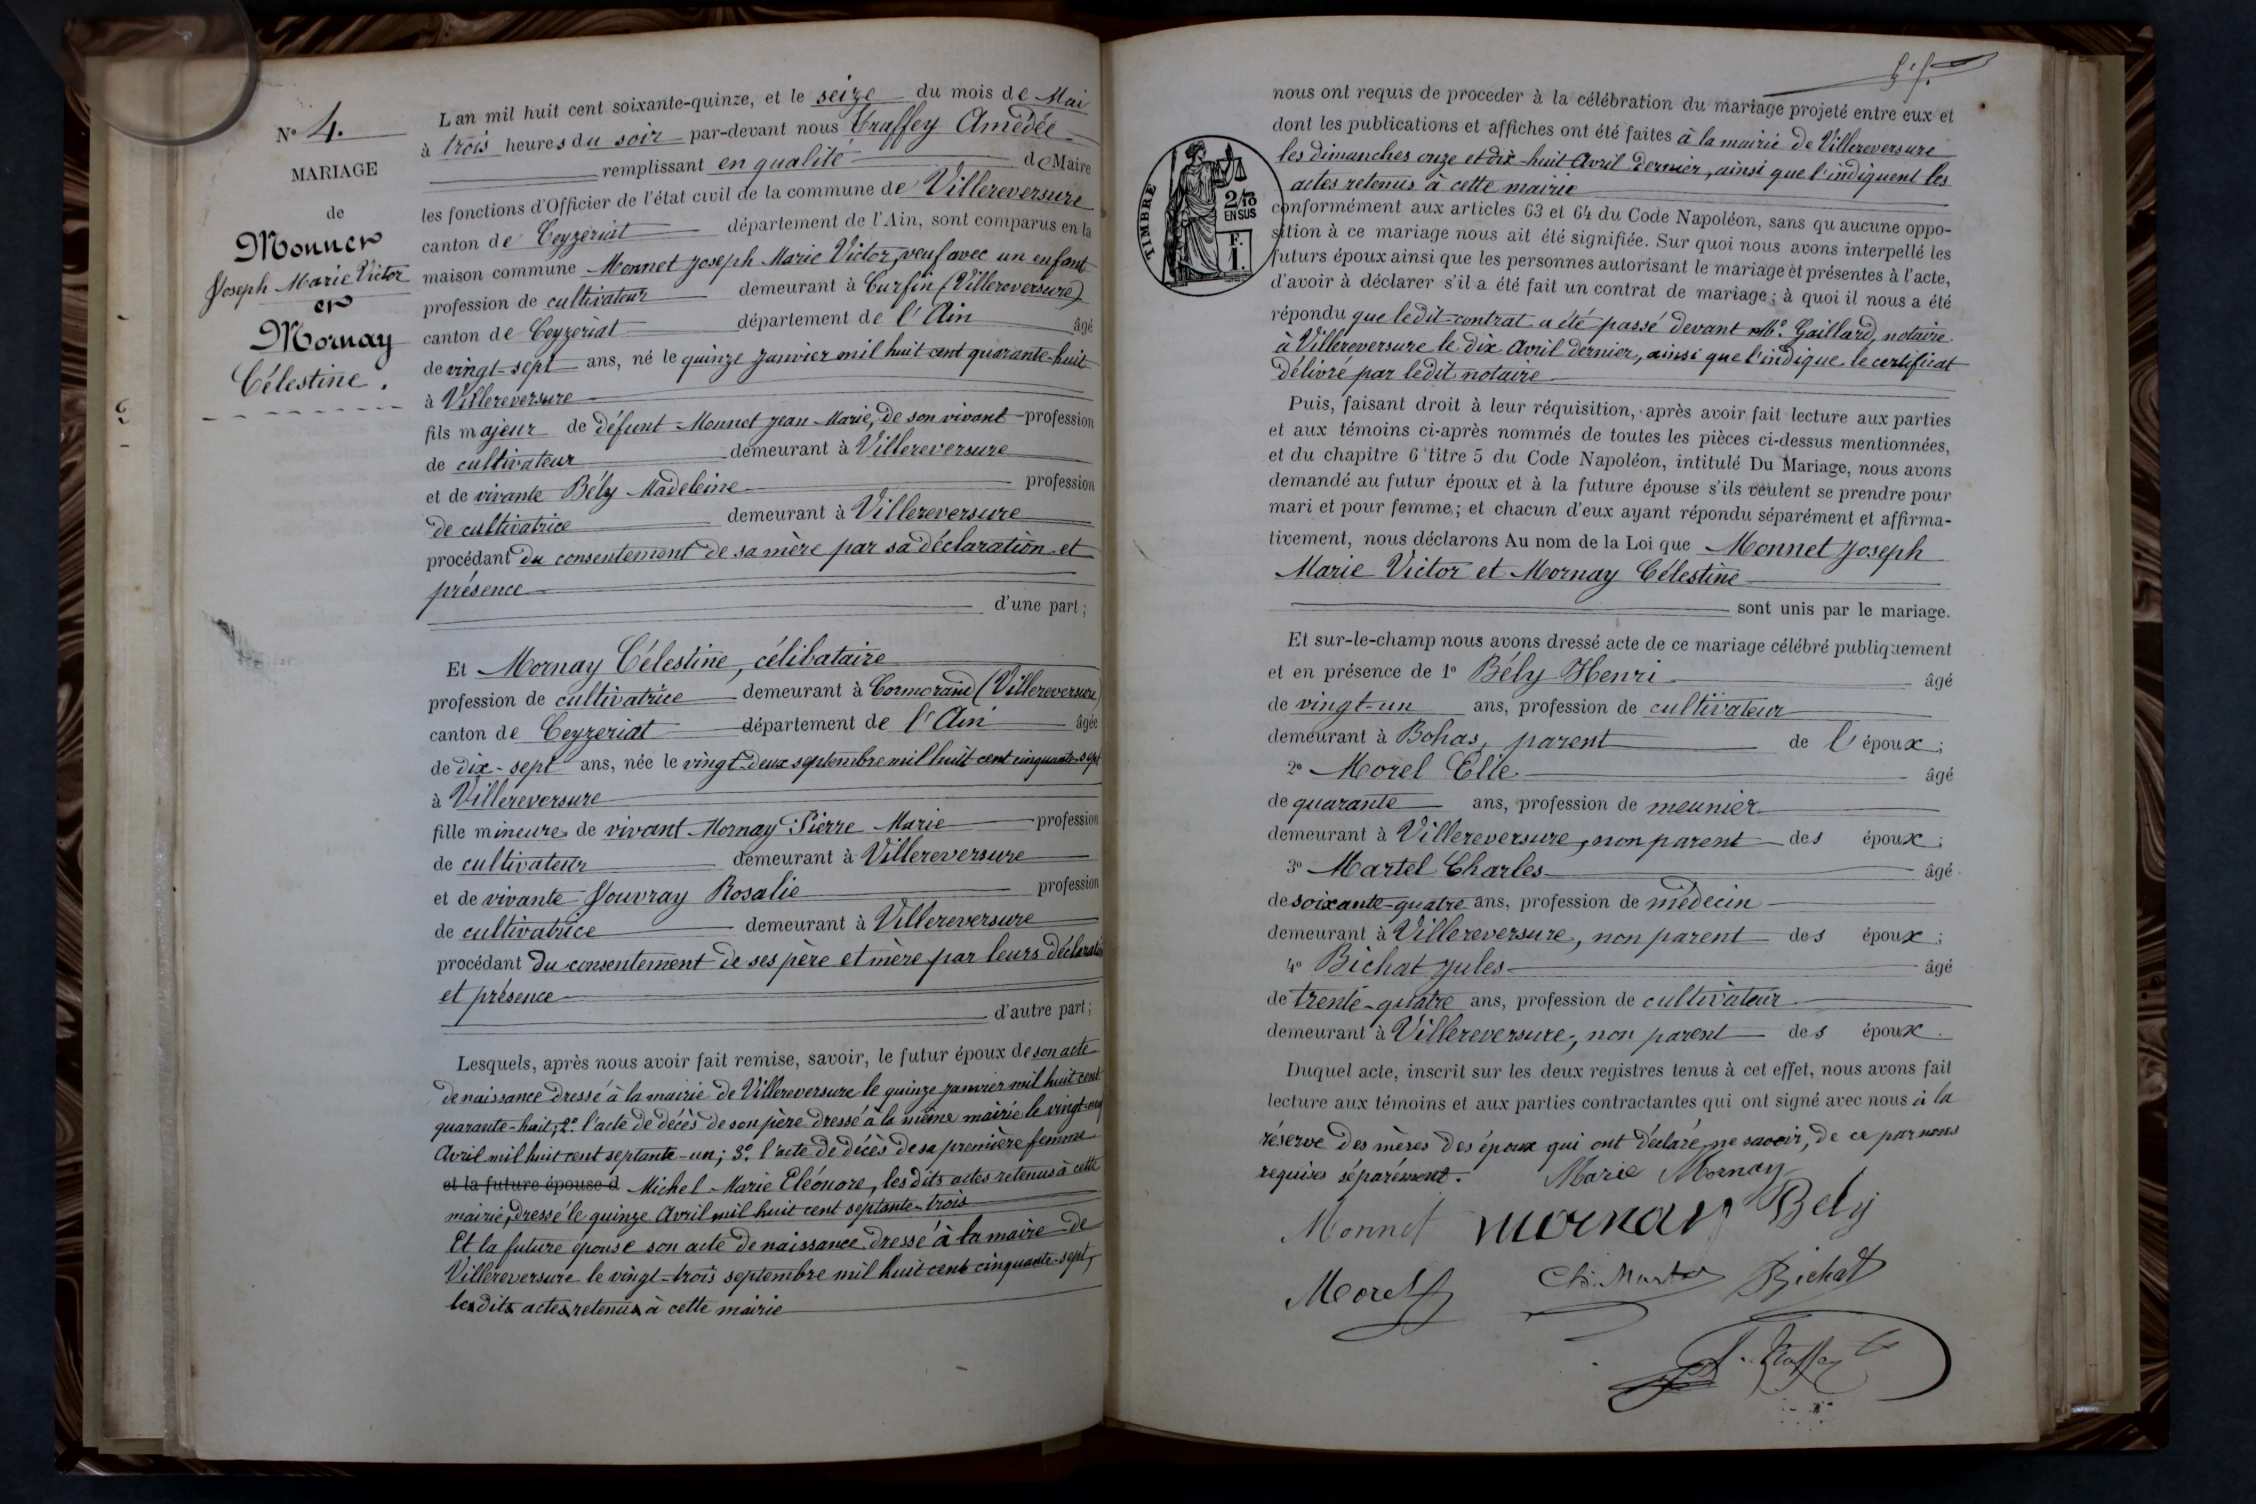 N° 4.
MARIAGE
de
Monnet
Joseph Marie Victor
et
Mornay
Célestine.
L'an mil huit cent soixante-quinze, et le seize du mois de Mai
à trois heures du soir par-devant nous Traffey Amédée
remplissant en qualité de Maire
les fonctions d'Officier de l'état civil de la commune de Villereversure
canton de Ceyzériat département de l'Ain, sont comparus en la
maison commune Monnet Joseph Marie Victor, veuf avec un enfant
profession de cultivateur demeurant à Curfin (Villereversure)
canton de Ceyzeriat département de l'Ain âgé
de vingt-sept ans, né le quinze janvier mil huit cent quarante-huit
à Villereversure
fils majeur de défunt Monnet Jean Marie, de son vivant profession
de cultivateur demeurant à Villereversure
et de vivante Bély Madeleine profession
de cultivatrice demeurant à Villereversure
procédant du consentement de sa mère par sa déclaration et
présence
d'une part ;
Et Mornay Célestine, célibataire
profession de cultivatrice demeurant à Cormorand (Villereversure)
canton de Ceyzeriat département de l'Ain âgée
de dix-sept ans, née le vingt-deux septembre mil huit cent cinquante-sept
à Villereversure
fille mineure de vivant Mornay Pierre Marie profession
de cultivateur demeurant à Villereversure
et de vivante Jouvray Rosalie profession
de cultivatrice demeurant à Villereversure
procédant du consentement de ses père et mère par leurs déclaration
et présence
d'autre part ;
Lesquels, après nous avoir fait remise, savoir, le futur époux de son acte
de naissance dressé à la mairie de Villereversure le quinze janvier mil huit cent
quarante-huit; 2° l'acte de décès de son père dressé à la même mairie le vingt-neuf
Avril mil huit cent septante-un; 3° l'acte de décès de sa première femme
et la future épouse d Michel Marie Eléonore, les dits actes retenus à cette
mairie, dressé le quinze Avril mil huit cent septante-trois
Et la future épouse son acte de naissance dressé à la mairie de
Villereversure le vingt-trois septembre mil huit cent cinquante-sept,
lesdits actes retenus à cette mairie
nous ont requis de proceder à la célébration du mariage projeté entre eux et
dont les publications et affiches ont été faites à la mairie de Villereversure
les dimanches onze et dix-huit Avril dernier, ainsi que l'indiquent les
actes retenus à cette mairie
TIMBRE
2/10
EN SUS
F.
I.
conformément aux articles 63 et 64 du Code Napoléon, sans qu'aucune oppo-
sition à ce mariage nous ait été signifiée. Sur quoi nous avons interpellé les
futurs époux ainsi que les personnes autorisant le mariage et présentes à l'acte,
d'avoir à déclarer s'il a été fait un contrat de mariage ; à quoi il nous a été
répondu que ledit contrat a été passé devant Me. Gaillard, notaire
à Villereversure le dix Avril dernier, ainsi que l'indique le certificat
délivré par ledit notaire
Puis, faisant droit à leur réquisition, après avoir fait lecture aux parties
et aux témoins ci-après nommés de toutes les pièces ci-dessus mentionnées,
et du chapitre 6 titre 5 du Code Napoléon, intitulé Du Mariage, nous avons
demandé au futur époux et à la future épouse s'ils veulent se prendre pour
mari et pour femme ; et chacun d'eux ayant répondu séparément et affirma-
tivement, nous déclarons Au nom de la Loi que Monnet Joseph
Marie Victor et Mornay Célestine
sont unis par le mariage.
Et sur-le-champ nous avons dressé acte de ce mariage célébré publiquement
et en présence de 1° Bély Henri âgé
de vingt-un ans, profession de cultivateur
demeurant à Bohas, parent de l'époux ;
2° Morel Elie âgé
de quarante ans, profession de meunier
demeurant à Villereversure, non parent des époux ;
3° Martel Charles âgé
de soixante-quatre ans, profession de médecin
demeurant à Villereversure, non parent des époux ;
4° Bichat Jules âgé
de trente-quatre ans, profession de cultivateur
demeurant à Villereversure, non parent des époux.
Duquel acte, inscrit sur les deux registres tenus à cet effet, nous avons fait
lecture aux témoins et aux parties contractantes qui ont signé avec nous à la
réserve des mères des époux qui ont déclaré ne savoir, de ce par nous
requises séparément.
Marie Mornay
Monnet mornay Bely
Morel Ch. Martel Bichat
A. Traffey